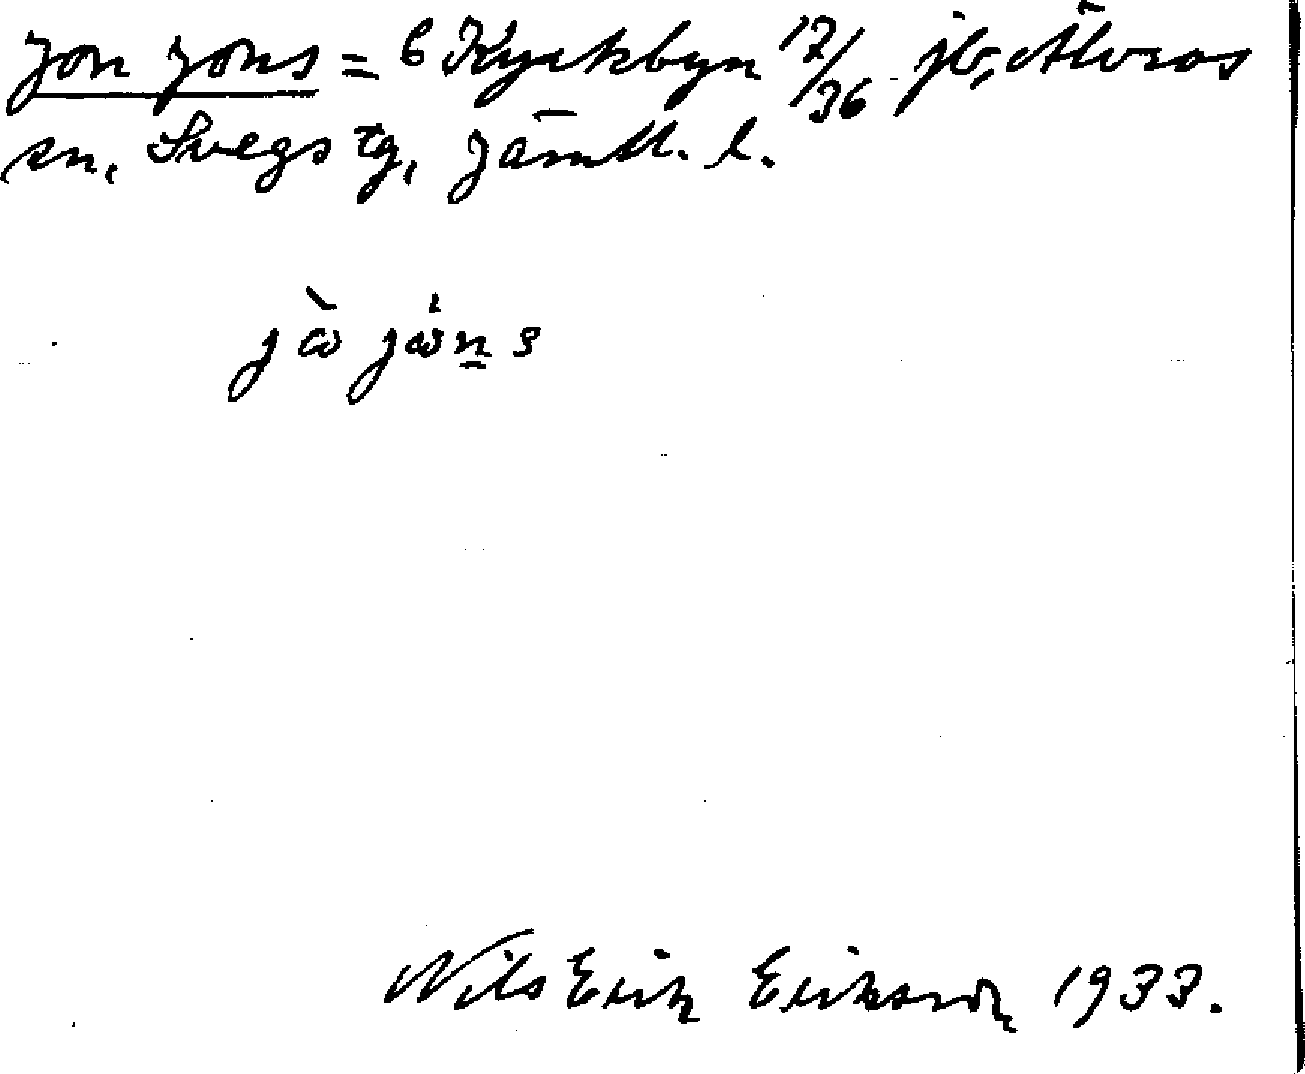 Jon Jons = 6 Kyrkbyn 17/36 jb, Älvros
sn, Svegs tg, Jämtl. l.
Nils Erik Erikson 1933.